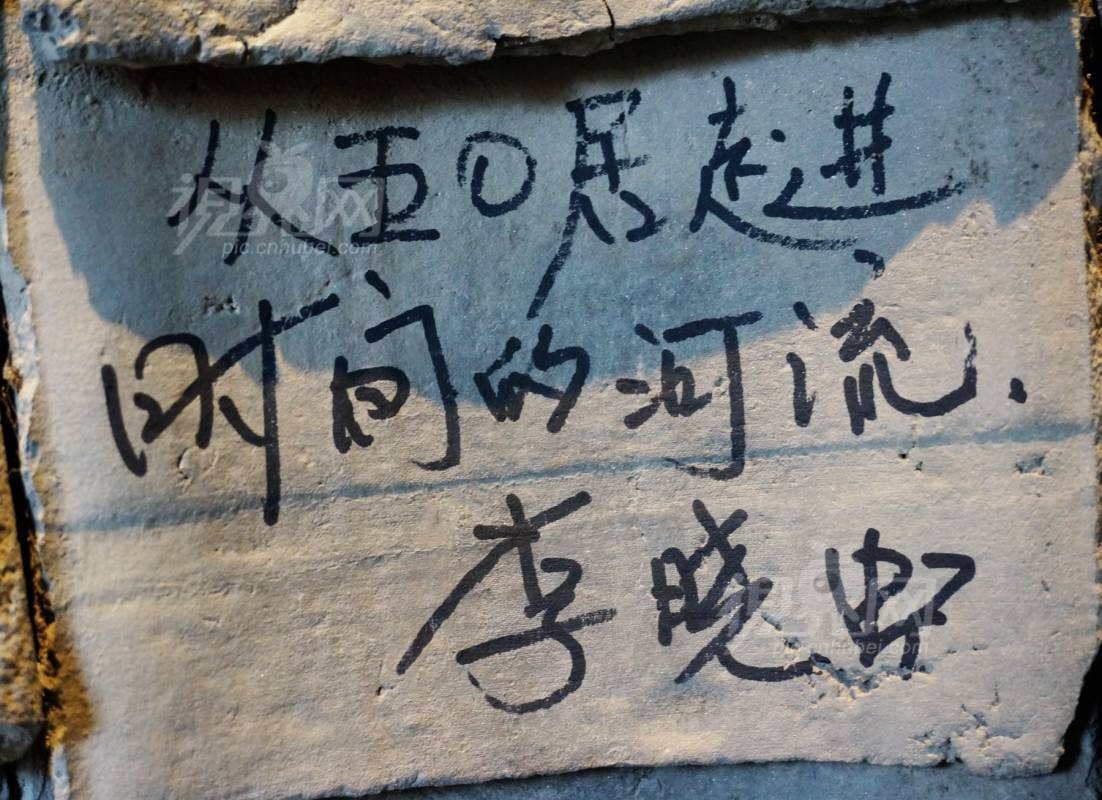 从五①居走进
时间的河流.
李晓
视界网
pic.cnhubei.com
视界网
pic.cnhubei.com